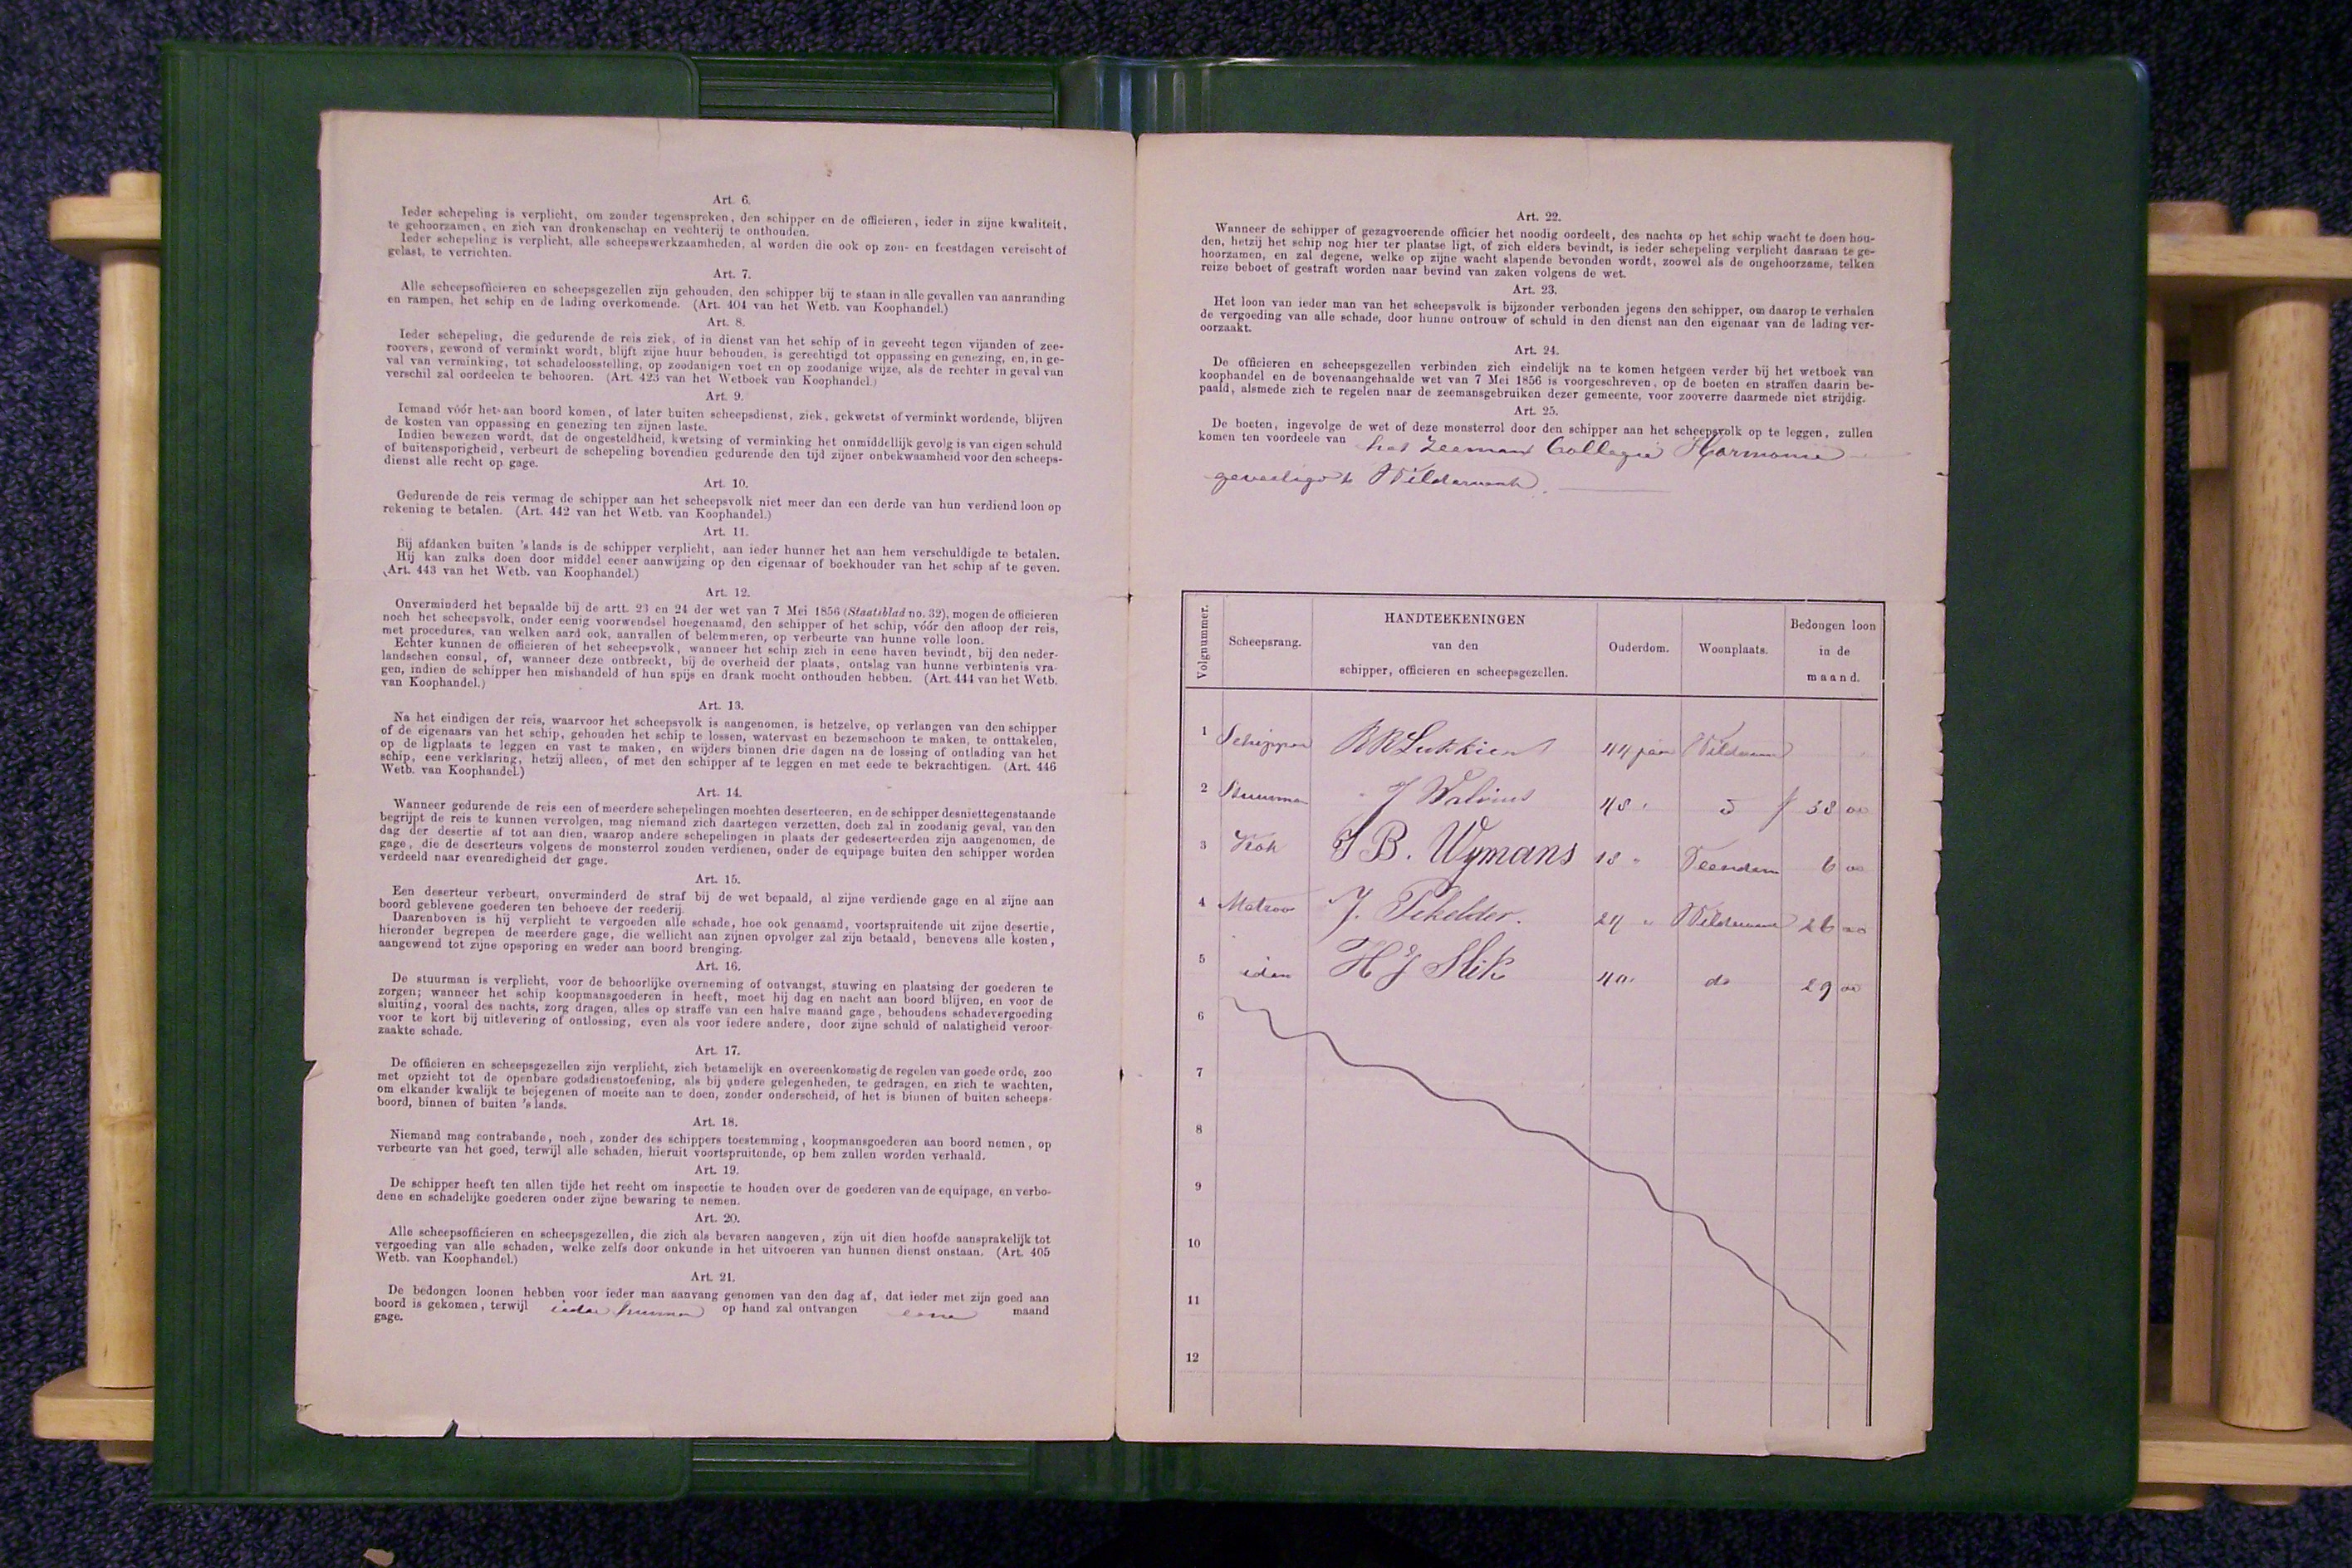 Art. 6.
Ieder schepeling is verplicht, om zonder tegenspreken, den schipper en de officieren, ieder in zijne kwaliteit,
te gehoorzamen, en zich van dronkenschap en vechterij te onthouden.
Ieder schepeling is verplicht, alle scheepswerkzaamheden, al worden die ook op zon- en feestdagen vereischt of
gelast, te verrichten.
Art. 7.
Alle scheepsofficieren en scheepsgezellen zijn gehouden, den schipper bij te staan in alle gevallen van aanranding
en rampen, het schip en de lading overkomende. (Art. 404 van het Wetb. van Koophandel.)
Art. 8.
Ieder schepeling, die gedurende de reis ziek, of in dienst van het schip of in gevecht tegen vijanden of zee-
roovers, gewond of verminkt wordt, blijft zijne huur behouden, is gerechtigd tot oppassing en genezing, en, in ge-
val van verminking, tot schadeloosstelling, op zoodanigen voet en op zoodanige wijze, als de rechter in geval van
verschil zal oordeelen te behooren. (Art. 423 van het Wetboek van Koophandel.)
Art. 9.
Iemand vóór het aan boord komen, of later buiten scheepsdienst, ziek, gekwetst of verminkt wordende, blijven
de kosten van oppassing en genezing ten zijnen laste.
Indien bewezen wordt, dat de ongesteldheid, kwetsing of verminking het onmiddellijk gevolg is van eigen schuld
of buitensporigheid, verbeurt de schepeling bovendien gedurende den tijd zijner onbekwaamheid voor den scheeps-
dienst alle recht op gage.
Art. 10.
Gedurende de reis vermag de schipper aan het scheepsvolk niet meer dan een derde van hun verdiend loon op
rekening te betalen. (Art. 442 van het Wetb. van Koophandel.)
Art. 11.
Bij afdanken buiten 's lands is de schipper verplicht, aan ieder hunner het aan hem verschuldigde te betalen.
Hij kan zulks doen door middel eener aanwijzing op den eigenaar of boekhouder van het schip af te geven.
(Art. 443 van het Wetb. van Koophandel.)
Art. 12.
Onverminderd het bepaalde bij de artt. 23 en 24 der wet van 7 Mei 1856 (Staatsblad no. 32), mogen de officieren
noch het scheepsvolk, onder eenig voorwendsel hoegenaamd, den schipper of het schip, vóór den afloop der reis,
met procedures, van welken aard ook, aanvallen of belemmeren, op verbeurte van hunne volle loon.
Echter kunnen de officieren of het scheepsvolk, wanneer het schip zich in eene haven bevindt, bij den neder-
landschen consul, of, wanneer deze ontbreekt, bij de overheid der plaats, ontslag van hunne verbintenis vra-
gen, indien de schipper hen mishandeld of hun spijs en drank mocht onthouden hebben. (Art. 444 van het Wetb.
van Koophandel.)
Art. 13.
Na het eindigen der reis, waarvoor het scheepsvolk is aangenomen, is hetzelve, op verlangen van den schipper
of de eigenaars van het schip, gehouden het schip te lossen, watervast en bezemschoon te maken, te onttakelen,
op de ligplaats te leggen en vast te maken, en wijders binnen drie dagen na de lossing of ontlading van het
schip, eene verklaring, hetzij alleen, of met den schipper af te leggen en met eede te bekrachtigen. (Art. 446
Wetb. van Koophandel.)
Art. 14.
Wanneer gedurende de reis een of meerdere schepelingen mochten deserteeren, en de schipper desniettegenstaande
begrijpt de reis te kunnen vervolgen, mag niemand zich daartegen verzetten, doch zal in zoodanig geval, van den
dag der desertie af tot aan dien, waarop andere schepelingen in plaats der gedeserteerden zijn aangenomen, de
gage, die de deserteurs volgens de monsterrol zouden verdienen, onder de equipage buiten den schipper worden
verdeeld naar evenredigheid der gage.
Art. 15.
Een deserteur verbeurt, onverminderd de straf bij de wet bepaald, al zijne verdiende gage en al zijne aan
boord geblevene goederen ten behoeve der reederij.
Daarenboven is hij verplicht te vergoeden alle schade, hoe ook genaamd, voortspruitende uit zijne desertie,
hieronder begrepen de meerdere gage, die wellicht aan zijnen opvolger zal zijn betaald, benevens alle kosten,
aangewend tot zijne opsporing en weder aan boord brenging.
Art. 16.
De stuurman is verplicht, voor de behoorlijke overneming of ontvangst, stuwing en plaatsing der goederen te
zorgen; wanneer het schip koopmansgoederen in heeft, moet hij dag en nacht aan boord blijven, en voor de
sluiting, vooral des nachts, zorg dragen, alles op straffe van een halve maand gage, behoudens schadevergoeding
voor te kort bij uitlevering of ontlossing, even als voor iedere andere, door zijne schuld of nalatigheid veroor-
zaakte schade.
Art. 17.
De officieren en scheepsgezellen zijn verplicht, zich betamelijk en overeenkomstig de regelen van goede orde, zoo
met opzicht tot de openbare godsdienstoefening, als bij andere gelegenheden, te gedragen, en zich te wachten,
om elkander kwalijk te bejegenen of moeite aan te doen, zonder onderscheid, of het is binnen of buiten scheeps-
boord, binnen of buiten 's lands.
Art. 18.
Niemand mag contrabande, noch, zonder des schippers toestemming, koopmansgoederen aan boord nemen, op
verbeurte van het goed, terwijl alle schaden, hieruit voortspruitende, op hem zullen worden verhaald.
Art. 19.
De schipper heeft ten allen tijde het recht om inspectie te houden over de goederen van de equipage, en verbo-
dene en schadelijke goederen onder zijne bewaring te nemen.
Art. 20.
Alle scheepsofficieren en scheepsgezellen, die zich als bevaren aangeven, zijn uit dien hoofde aansprakelijk tot
vergoeding van alle schaden, welke zelfs door onkunde in het uitvoeren van hunnen dienst onstaan. (Art. 405
Wetb. van Koophandel.)
Art. 21.
De bedongen loonen hebben voor ieder man aanvang genomen van den dag af, dat ieder met zijn goed aan
boord is gekomen, terwijl ieder hunner op hand zal ontvangen eene maand
gage.
Art. 22.
Wanneer de schipper of gezagvoerende officier het noodig oordeelt, des nachts op het schip wacht te doen hou-
den, hetzij het schip nog hier ter plaatse ligt, of zich elders bevindt, is ieder schepeling verplicht daaraan te ge-
hoorzamen, en zal degene, welke op zijne wacht slapende bevonden wordt, zoowel als de ongehoorzame, telken
reize beboet of gestraft worden naar bevind van zaken volgens de wet.
Art. 23.
Het loon van ieder man van het scheepsvolk is bijzonder verbonden jegens den schipper, om daarop te verhalen
de vergoeding van alle schade, door hunne ontrouw of schuld in den dienst aan den eigenaar van de lading ver-
oorzaakt.
Art. 24.
De officieren en scheepsgezellen verbinden zich eindelijk na te komen hetgeen verder bij het wetboek van
koophandel en de bovenaangehaalde wet van 7 Mei 1856 is voorgeschreven, op de boeten en straffen daarin be-
paald, alsmede zich te regelen naar de zeemansgebruiken dezer gemeente, voor zooverre daarmede niet strijdig.
Art. 25.
De boeten, ingevolge de wet of deze monsterrol door den schipper aan het scheepsvolk op te leggen, zullen
komen ten voordeele van het Zeemans Collegie Harmonie
gevestigd te Wildervank.
Volgnummer. Scheepsrang. HANDTEEKENINGEN van den schipper, officieren en scheepsgezellen. Ouderdom. Woonplaats. Bedongen loon in de maand.
1 Schipper BR Lukkien 44 jaar Wildervank
2 Stuurman J 48 " f 58 00
3 Kok B. Wymans 18 " Veendam 6 00
4 Matroos J. Pekelder. 24 " Wildervank 26 00
5 idem HJ Slik 40 " do 29 00
6
7
8
9
10
11
12